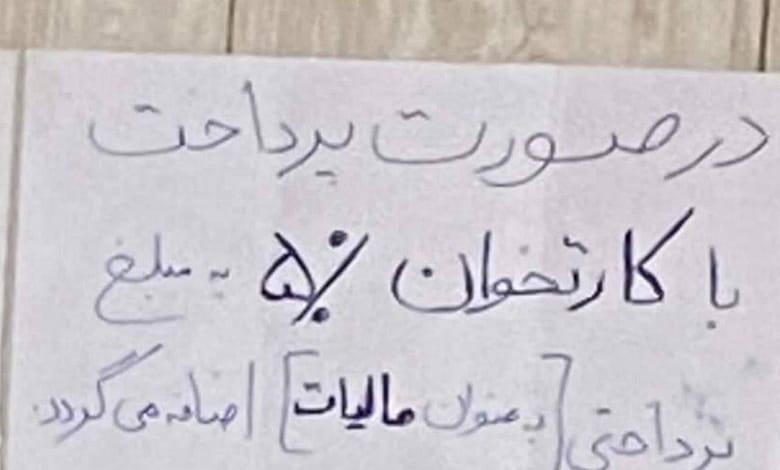 در صورت پرداخت
با کارتخوان ۵٪ به مبلغ
پرداختی [به عنوان مالیات] اضافه می گردد.